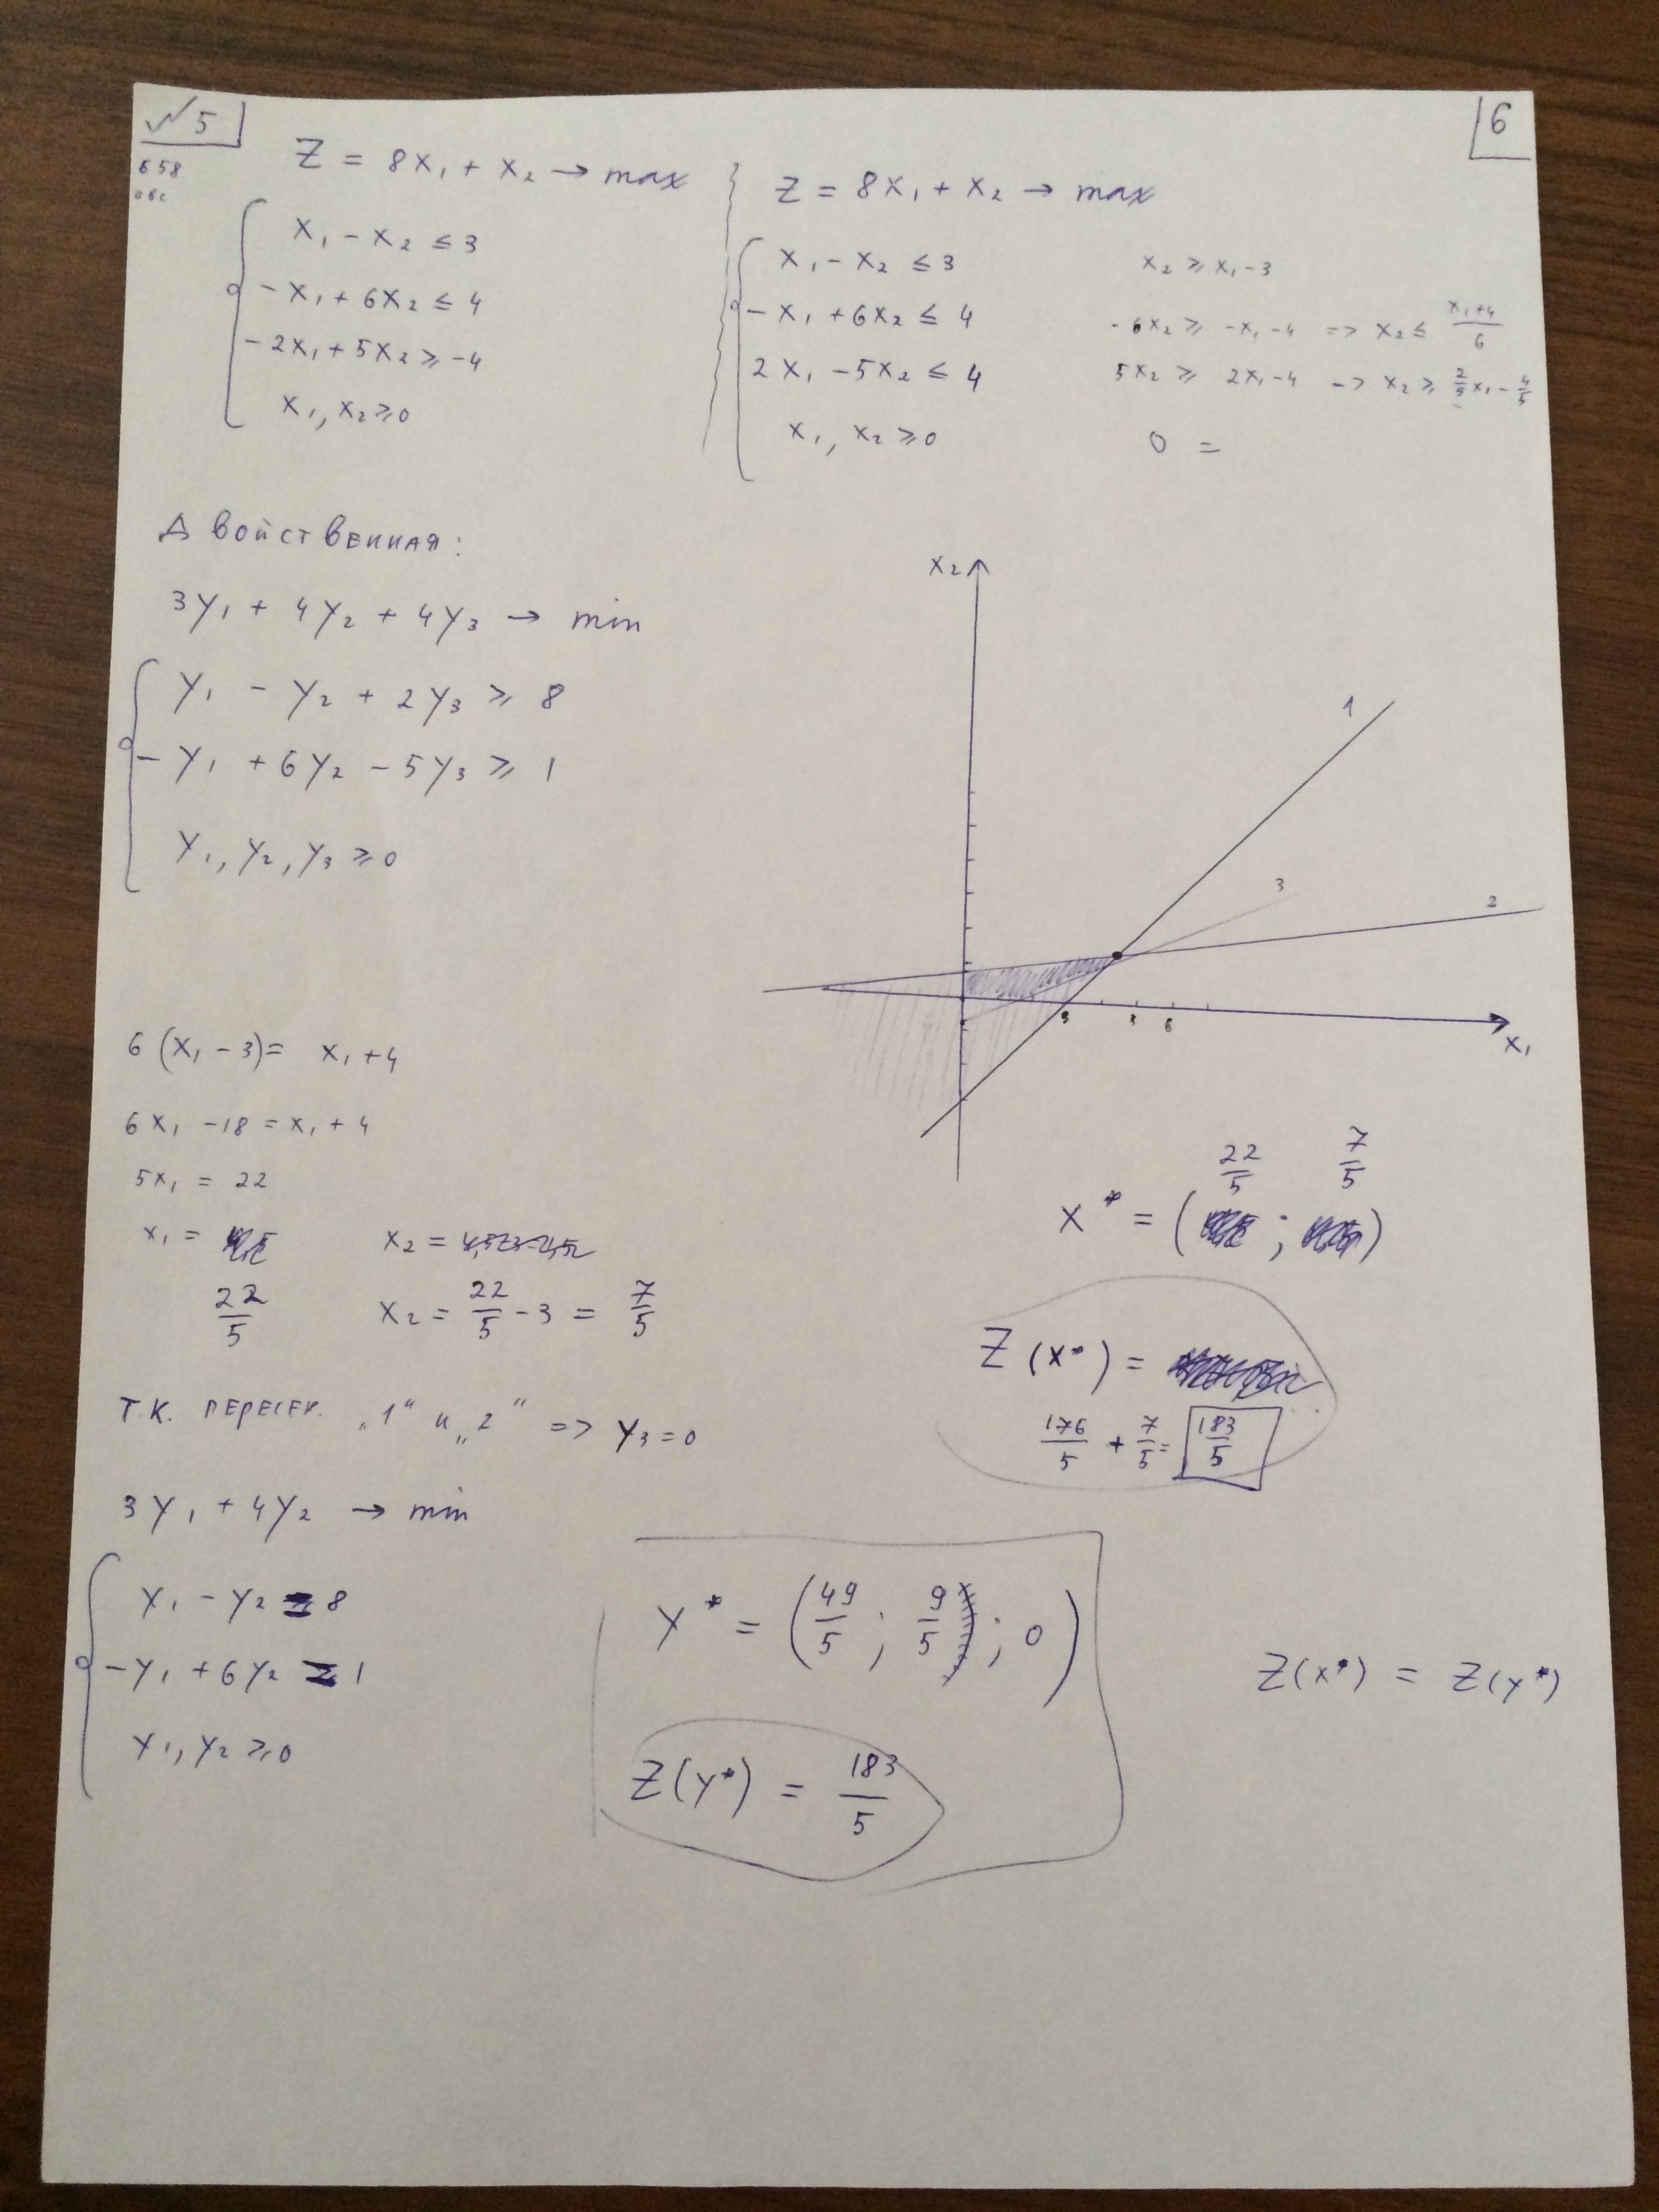 №5
6
658
Z = 8x₁ + x₂ → max
x₁ - x₂ ≤ 3
-x₁ + 6x₂ ≤ 4
-2x₁ + 5x₂ ≥ -4
x₁, x₂ ≥ 0
Z = 8x₁ + x₂ → max
x₁ - x₂ ≤ 3
-x₁ + 6x₂ ≤ 4
2x₁ - 5x₂ ≤ 4
x₁, x₂ ≥ 0
x₂ ≥ x₁ - 3
-6x₂ ≥ -x₁ - 4 => x₂ ≤ (x₁+4)/6
5x₂ ≥ 2x₁ - 4 -> x₂ ≥ 2/5 x₁ - 4/5
0 =
Двойственная:
3y₁ + 4y₂ + 4y₃ → min
y₁ - y₂ + 2y₃ ≥ 8
-y₁ + 6y₂ - 5y₃ ≥ 1
y₁, y₂, y₃ ≥ 0
x₂
1
3
2
3
6
x₁
6(x₁ - 3) = x₁ + 4
6x₁ - 18 = x₁ + 4
5x₁ = 22
x₁ = 22/5
x₂ =
x₂ = 22/5 - 3 = 7/5
x* = (22/5 ; 7/5)
Z(x*) =
176/5 + 7/5 = 183/5
Т.К. ПЕРЕСЕК. „1“ и „2“ => y₃ = 0
3y₁ + 4y₂ → min
y₁ - y₂ = 8
-y₁ + 6y₂ = 1
y₁, y₂ ≥ 0
y* = (49/5 ; 9/5 ; 0)
Z(y*) = 183/5
Z(x*) = Z(y*)